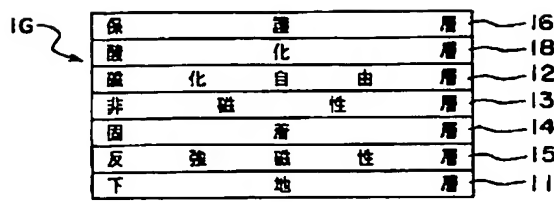 1G
保護層 16
酸化層 18
磁化自由層 12
非磁性層 13
固着層 14
反強磁性層 15
下地層 11